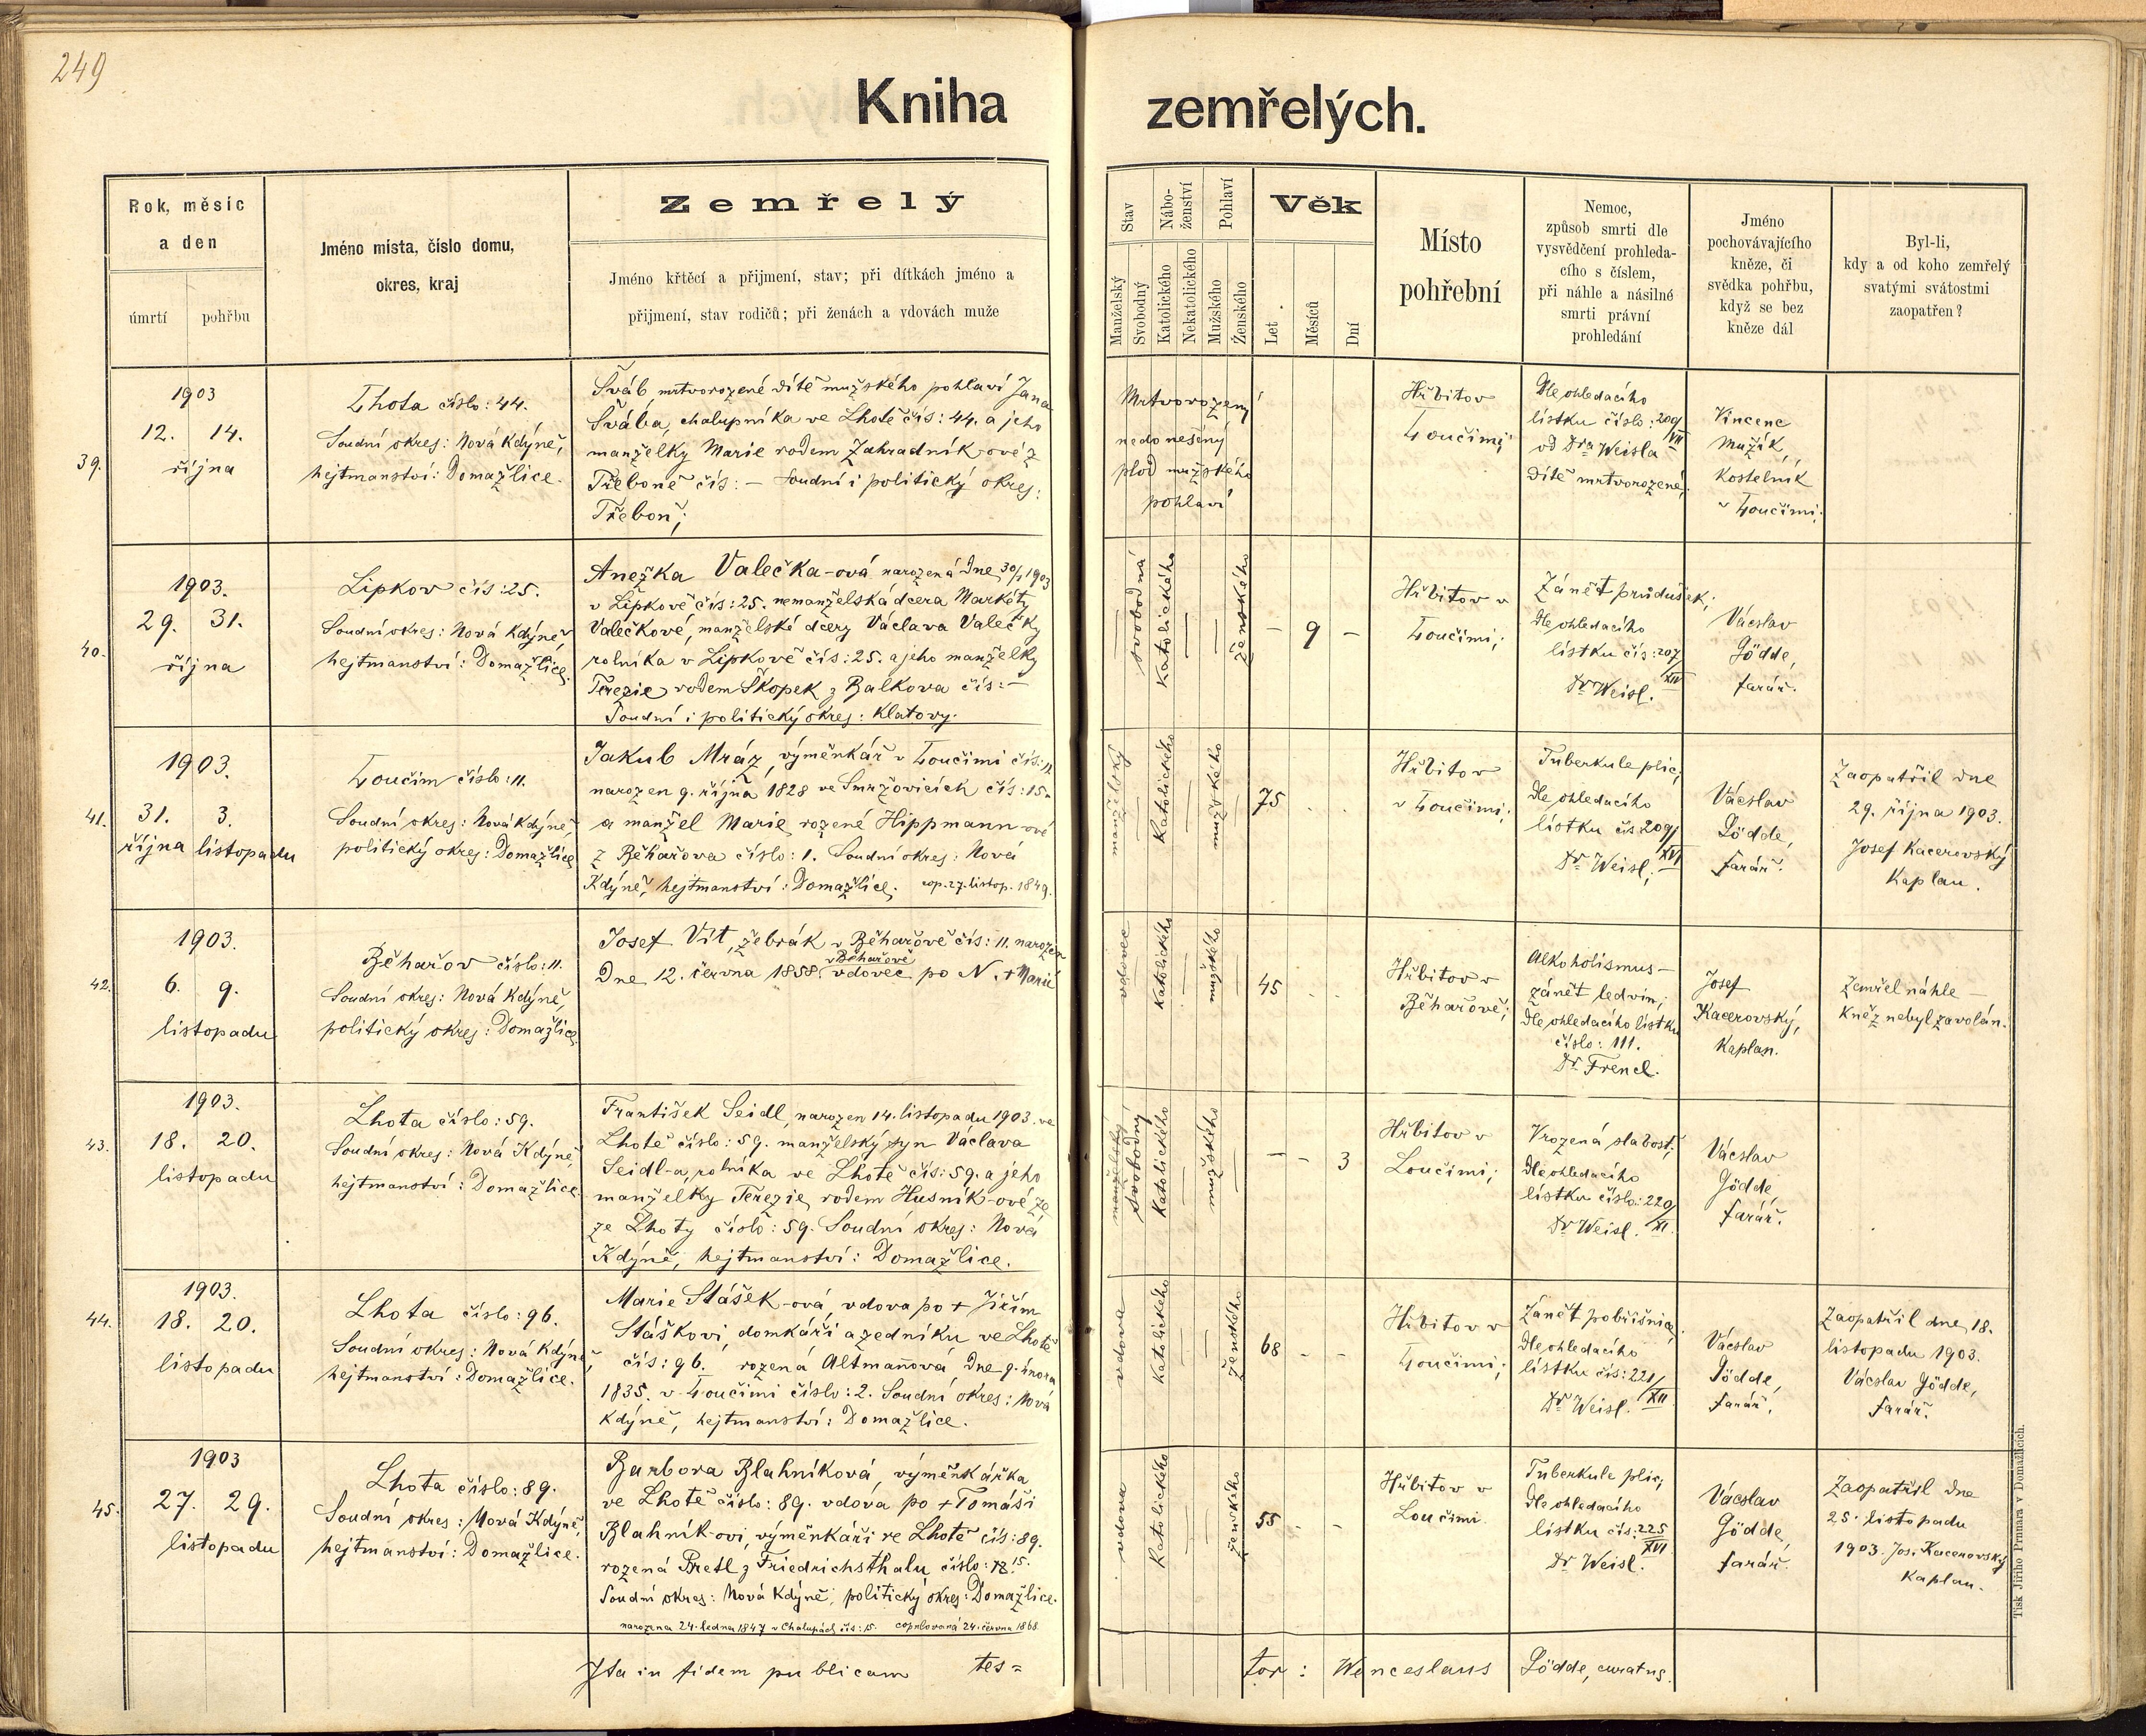 249
Kniha zemřelých.
Rok, měsíc
a den
úmrtí
pohřbu
Jméno místa, číslo domu,
okres, kraj
Zemřelý
Jméno křtěcí a přijmení, stav; při dítkách jméno a
přijmení, stav rodičů; při ženách a vdovách muže
Stav
Manželský
Svobodný
Nábo-
ženství
Katolického
Nekatolického
Pohlaví
Mužského
Ženského
Věk
Let
Měsíců
Dní
Místo
pohřební
Nemoc,
způsob smrti dle
vysvědčení prohleda-
cího s číslem,
při náhle a násilné
smrti právní
prohledání
Jméno
pochovávajícího
kněze, či
svědka pohřbu,
když se bez
kněze dál
Byl-li,
kdy a od koho zemřelý
svatými svátostmi
zaopatřen?
39.
1903
12. 14.
října
Lhota číslo: 44.
Soudní okres: Nová Kdýně,
hejtmanství: Domažlice.
Šváb, mrtvorozené dítě mužského pohlaví Jana
Švába, chalupníka ve Lhotě čís: 44. a jeho
manželky Marie rodem Zahradník-ové z
Třeboně čís: – Soudní i politický okres:
Třeboň;
Mrtvorozený
nedonešený
plod mužského
pohlaví
Hřbitov
Loučimi;
Dle ohledacího
lístku číslo: 209/VII
od Dra Weisla
dítě mrtvorozené;
Vincenc
Mužík,
kostelník
v Loučimi;
40.
1903.
29. 31.
října
Lipkov čís: 25.
Soudní okres: Nová Kdýně,
hejtmanství: Domažlice.
Anežka Valečka-ová narozená dne 30/1 1903
v Lipkově čís: 25. nemanželská dcera Markéty
Valečkové, manželské dcery Václava Valečky
rolníka v Lipkově čís: 25. a jeho manželky
Terezie rodem Škopek z Balkova čís: –
Soudní i politický okres: Klatovy.
svobodná
Katolického
Ženského
– 9 –
Hřbitov v
Loučimi;
Zánět průdušek;
Dle ohledacího
lístku čís: 207/XIV
Dr Weisl.
Václav
Gödde,
farář.
41.
1903.
31. 3.
října listopadu
Loučim číslo: 11.
Soudní okres: Nová Kdýně
politický okres: Domažlice
Jakub Mráz, výměnkář v Loučimi čís: 11
narozen 9. října 1828 ve Smržovicích čís: 15.
a manžel Marie rozené Hippmann-ové
z Běhařova číslo: 1. Soudní okres: Nová
Kdýně, hejtmanství: Domažlice. cop. 27. listop. 1849.
manželský
Katolického
mužského
75 . .
Hřbitov
v Loučimi;
Tuberkule plic;
Dle ohledacího
lístku čís 209/XVI
Dr Weisl;
Václav
Gödde,
farář.
Zaopatřil dne
29. října 1903.
Josef Kacerovský
Kaplan.
42.
1903.
6. 9.
listopadu
Běhařov číslo: 11.
Soudní okres: Nová Kdýně,
politický okres: Domažlice.
Josef Vít, žebrák v Běhařově čís: 11. narozen
v Běhařově
Dne 12. června 1858. vdovec po N. + Marii
vdovec
Katolického
mužského
45 . .
Hřbitov v
Běhařově;
Alkoholismus –
zánět ledvin;
Dle ohledacího lístku
číslo: 111.
Dr Frencl.
Josef
Kacerovský,
Kaplan.
Zemřel náhle –
Kněz nebyl zavolán.
43.
1903.
18. 20.
listopadu
Lhota číslo: 59.
Soudní okres: Nová Kdýně,
hejtmanství: Domažlice.
František Seidl, narozen 14. listopadu 1903. ve
Lhotě číslo: 59. manželský syn Václava
Seidl-a, rolníka ve Lhotě čís: 59. a jeho
manželky Terezie, rodem Husník-ové ze
ze Lhoty číslo: 59. Soudní okres: Nová
Kdýně, hejtmanství: Domažlice.
manželský
svobodný
Katolického
mužského
– – 3
Hřbitov v
Loučimi;
Vrozená slabost;
Dle ohledacího
lístku číslo: 220/XI.
Dr Weisl.
Václav
Gödde,
farář.
44.
1903.
18. 20.
listopadu
Lhota číslo: 96.
Soudní okres: Nová Kdýně,
hejtmanství: Domažlice.
Marie Stášek-ová, vdova po + Jiřím
Stáškovi, domkáři a zedníku, ve Lhotě
čís: 96. rozená Altmanová dne 9. února
1835. v Loučimi číslo: 2. Soudní okres: Nová
Kdýně, hejtmanství: Domažlice.
vdova
Katolického
Ženského
68 – –
Hřbitov v
Loučimi;
Zánět pobřišnice
Dle ohledacího
lístku čís: 221/XII
Dr Weisl.
Václav
Gödde,
farář.
Zaopatřil dne 18.
listopadu 1903.
Václav Gödde,
farář.
45.
1903
27. 29.
listopadu
Lhota číslo: 89.
Soudní okres: Nová Kdýně,
hejtmanství: Domažlice.
Barbora Blahníková, výměnkářka
ve Lhotě číslo: 89. vdova po + Tomáši
Blahník-ovi, výměnkáři ve Lhotě čís: 89.
rozená Pretl z Friedrichsthalu, číslo: 15.
Soudní okres: Nová Kdýně, politický okres: Domažlice.
narozena 24. ledna 1847 v Chalupách čís: 15. copulovaná 24. června 1868.
vdova
Katolického
ženského
55 – –
Hřbitov v
Loučimi.
Tuberkule plic;
Dle ohledacího
lístku čís: 225/XVI
Dr Weisl.
Václav
Gödde,
farář.
Zaopatřil dne
25. listopadu
1903. Jos. Kacerovský
Kaplan.
Ita in fidem publicam tes=
tor: Wenceslaus Gödde, curatus.
Tisk Jiřího Prunara v Domažlicích.